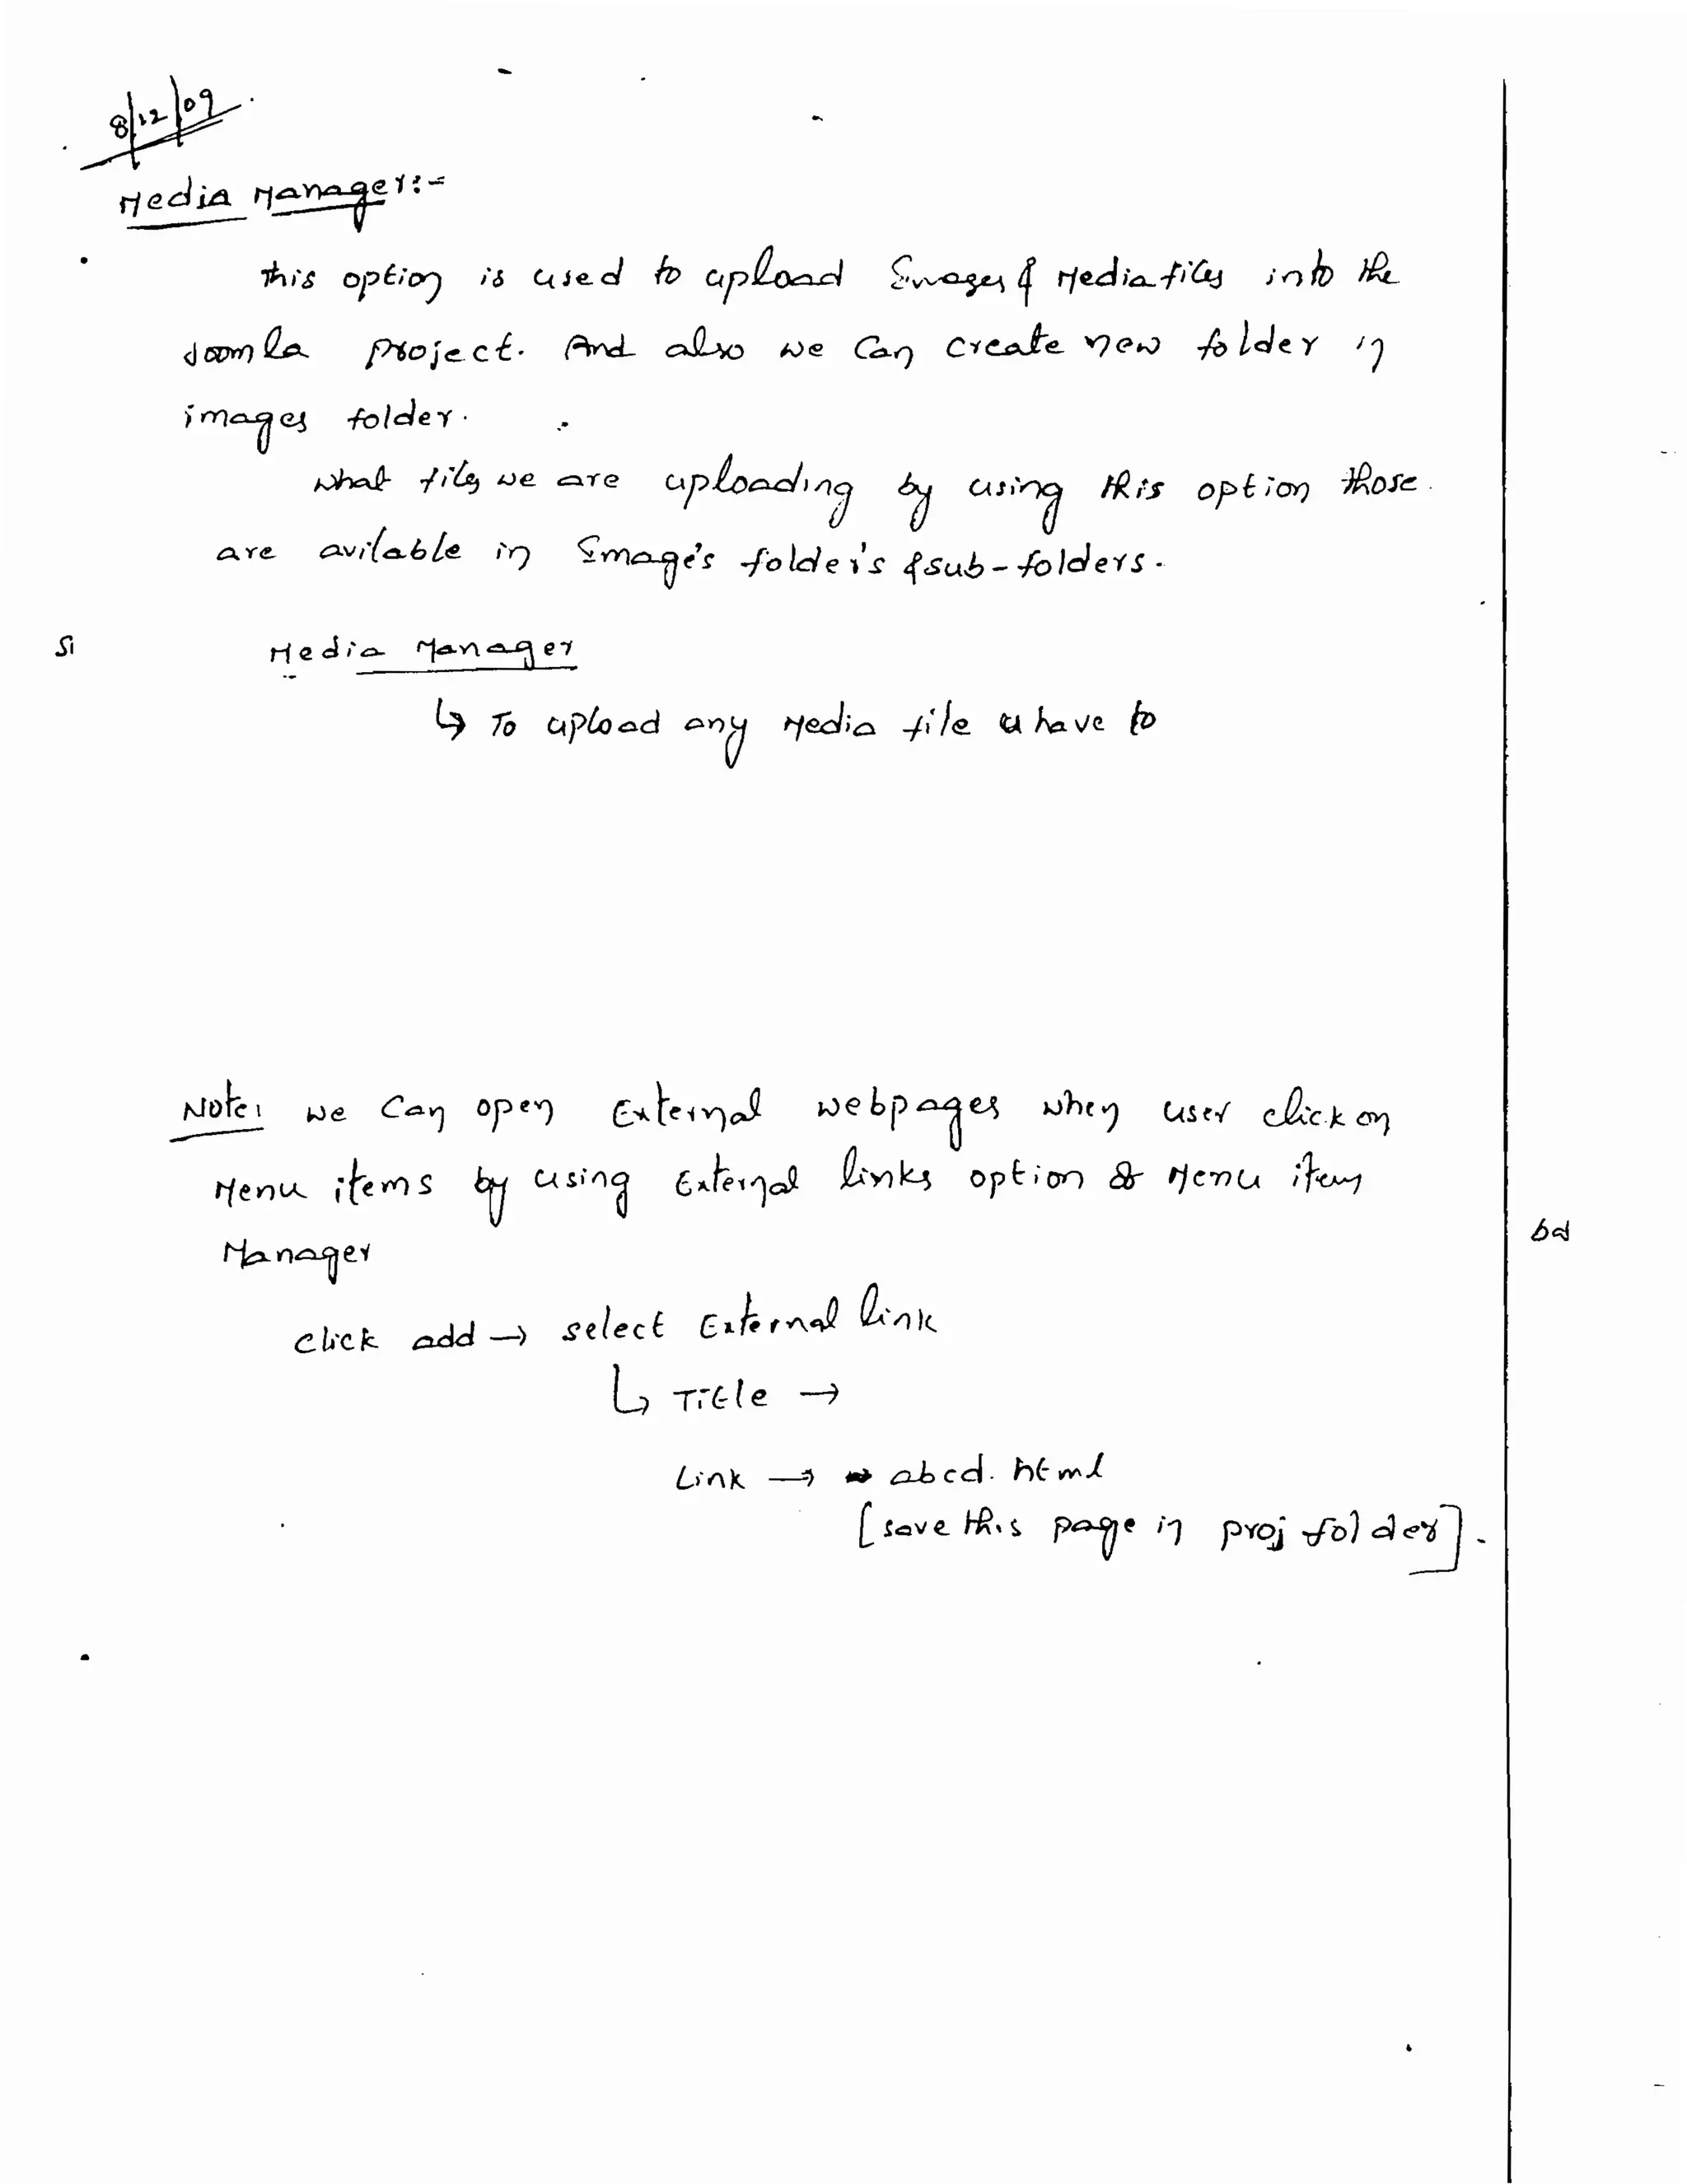 8/12/09
Media Manager:-
This option is used to upload Images & Media files into the
Joomla project. And also we can create new folder in
images folder.
what files we are uploading by using this option those
are avilable in Image's folder's & sub-folders.
SI
Media Manager
↳ To upload any Media file u have to
Note: we can open External webpages when user click on
Menu items by using External links option & Menu item
Manager
bd
click add → select External link
↳ Title →
Link → abcd.html
[save this page in proj folder].